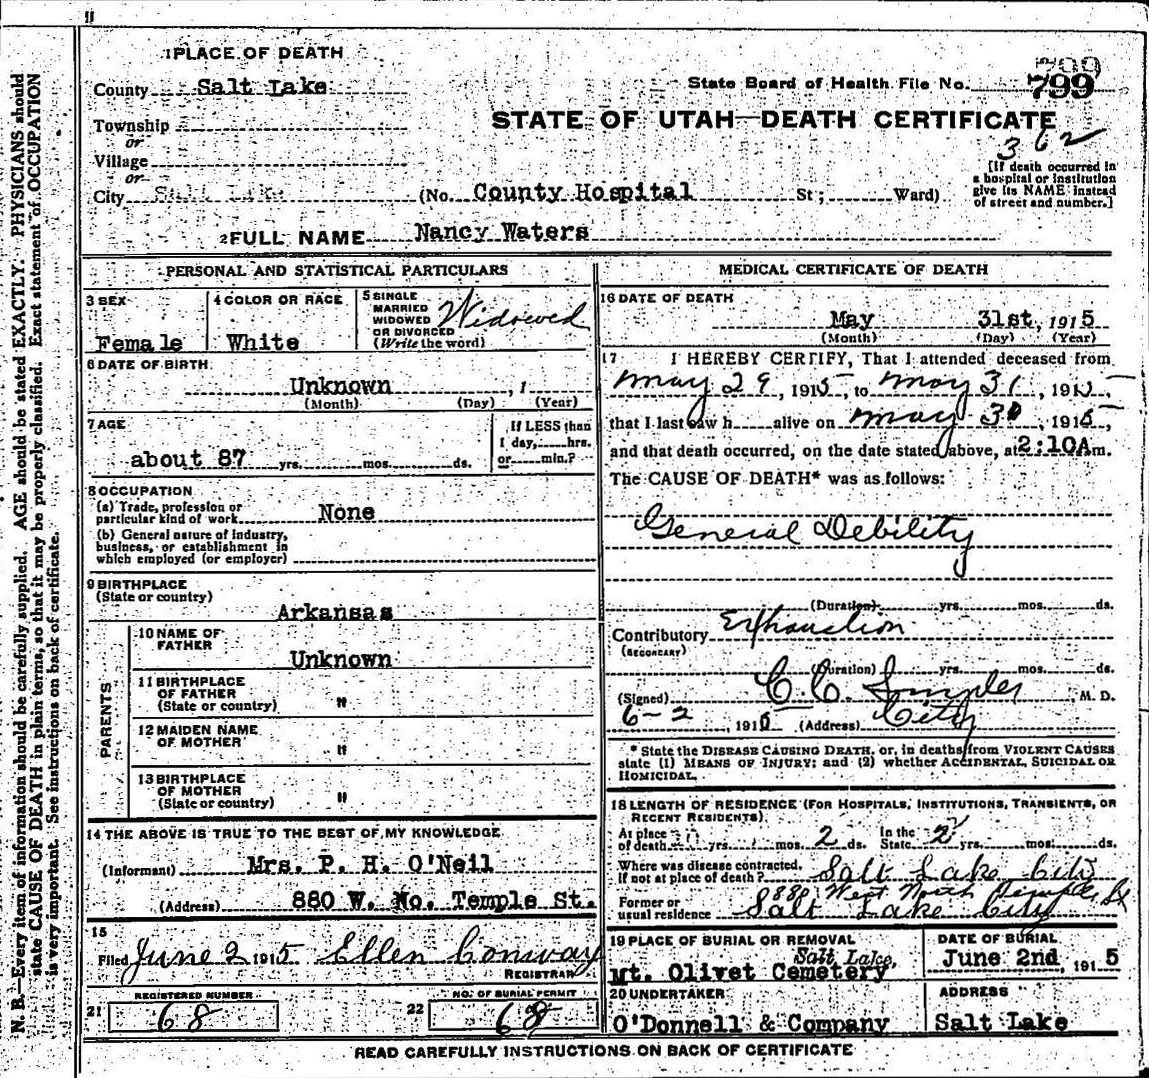 1 PLACE OF DEATH
799
County Salt Lake
State Board of Health File No. 799
Township
STATE OF UTAH—DEATH CERTIFICATE
or
362
Village
[If death occurred in a hospital or institution give its NAME instead of street and number.]
or
City Salt Lake (No. County Hospital St; Ward)
2 FULL NAME Nancy Waters
PERSONAL AND STATISTICAL PARTICULARS
3 SEX
Female
4 COLOR OR RACE
White
5 SINGLE
MARRIED
WIDOWED
OR DIVORCED
(Write the word)
Widowed
6 DATE OF BIRTH
Unknown , 1
(Month) (Day) (Year)
7 AGE
about 87 yrs. mos. ds.
If LESS than
1 day, hrs.
or min.?
8 OCCUPATION
(a) Trade, profession or
particular kind of work None
(b) General nature of industry,
business, or establishment in
which employed (or employer)
9 BIRTHPLACE
(State or country)
Arkansas
PARENTS
10 NAME OF
FATHER
Unknown
11 BIRTHPLACE
OF FATHER
(State or country) "
12 MAIDEN NAME
OF MOTHER "
13 BIRTHPLACE
OF MOTHER
(State or country) "
14 THE ABOVE IS TRUE TO THE BEST OF MY KNOWLEDGE
(Informant) Mrs. P. H. O'Neil
(Address) 880 W. No. Temple St.
15
Filed June 2 1915 Ellen Conway
REGISTRAR
REGISTERED NUMBER
21 68
NO. OF BURIAL PERMIT
22 68
MEDICAL CERTIFICATE OF DEATH
16 DATE OF DEATH
May 31st, 1915
(Month) (Day) (Year)
17 I HEREBY CERTIFY, That I attended deceased from
May 29, 1915, to May 31, 1915
that I last saw h alive on May 30, 1915,
and that death occurred, on the date stated above, at 2:10A m.
The CAUSE OF DEATH* was as follows:
General Debility
(Duration) yrs. mos. ds.
Contributory Exhaustion
(SECONDARY)
(Duration) yrs. mos. ds.
(Signed) C. C. M. D.
6-2 1915 (Address) City
* State the DISEASE CAUSING DEATH, or, in deaths from VIOLENT CAUSES
state (1) MEANS OF INJURY; and (2) whether ACCIDENTAL, SUICIDAL OR
HOMICIDAL.
18 LENGTH OF RESIDENCE (FOR HOSPITALS, INSTITUTIONS, TRANSIENTS, OR
RECENT RESIDENTS)
At place
of death yrs. mos. 2 ds. In the
State 2 yrs. mos. ds.
Where was disease contracted,
If not at place of death? Salt Lake City
880 West North Temple St
Former or
usual residence Salt Lake City
19 PLACE OF BURIAL OR REMOVAL
Salt Lake,
Mt. Olivet Cemetery
DATE OF BURIAL
June 2nd, 1915
20 UNDERTAKER
O'Donnell & Company
ADDRESS
Salt Lake
READ CAREFULLY INSTRUCTIONS ON BACK OF CERTIFICATE
N. B.—Every item of information should be carefully supplied. AGE should be stated EXACTLY. PHYSICIANS should
state CAUSE OF DEATH in plain terms, so that it may be properly classified. Exact statement of OCCUPATION
is very important. See instructions on back of certificate.